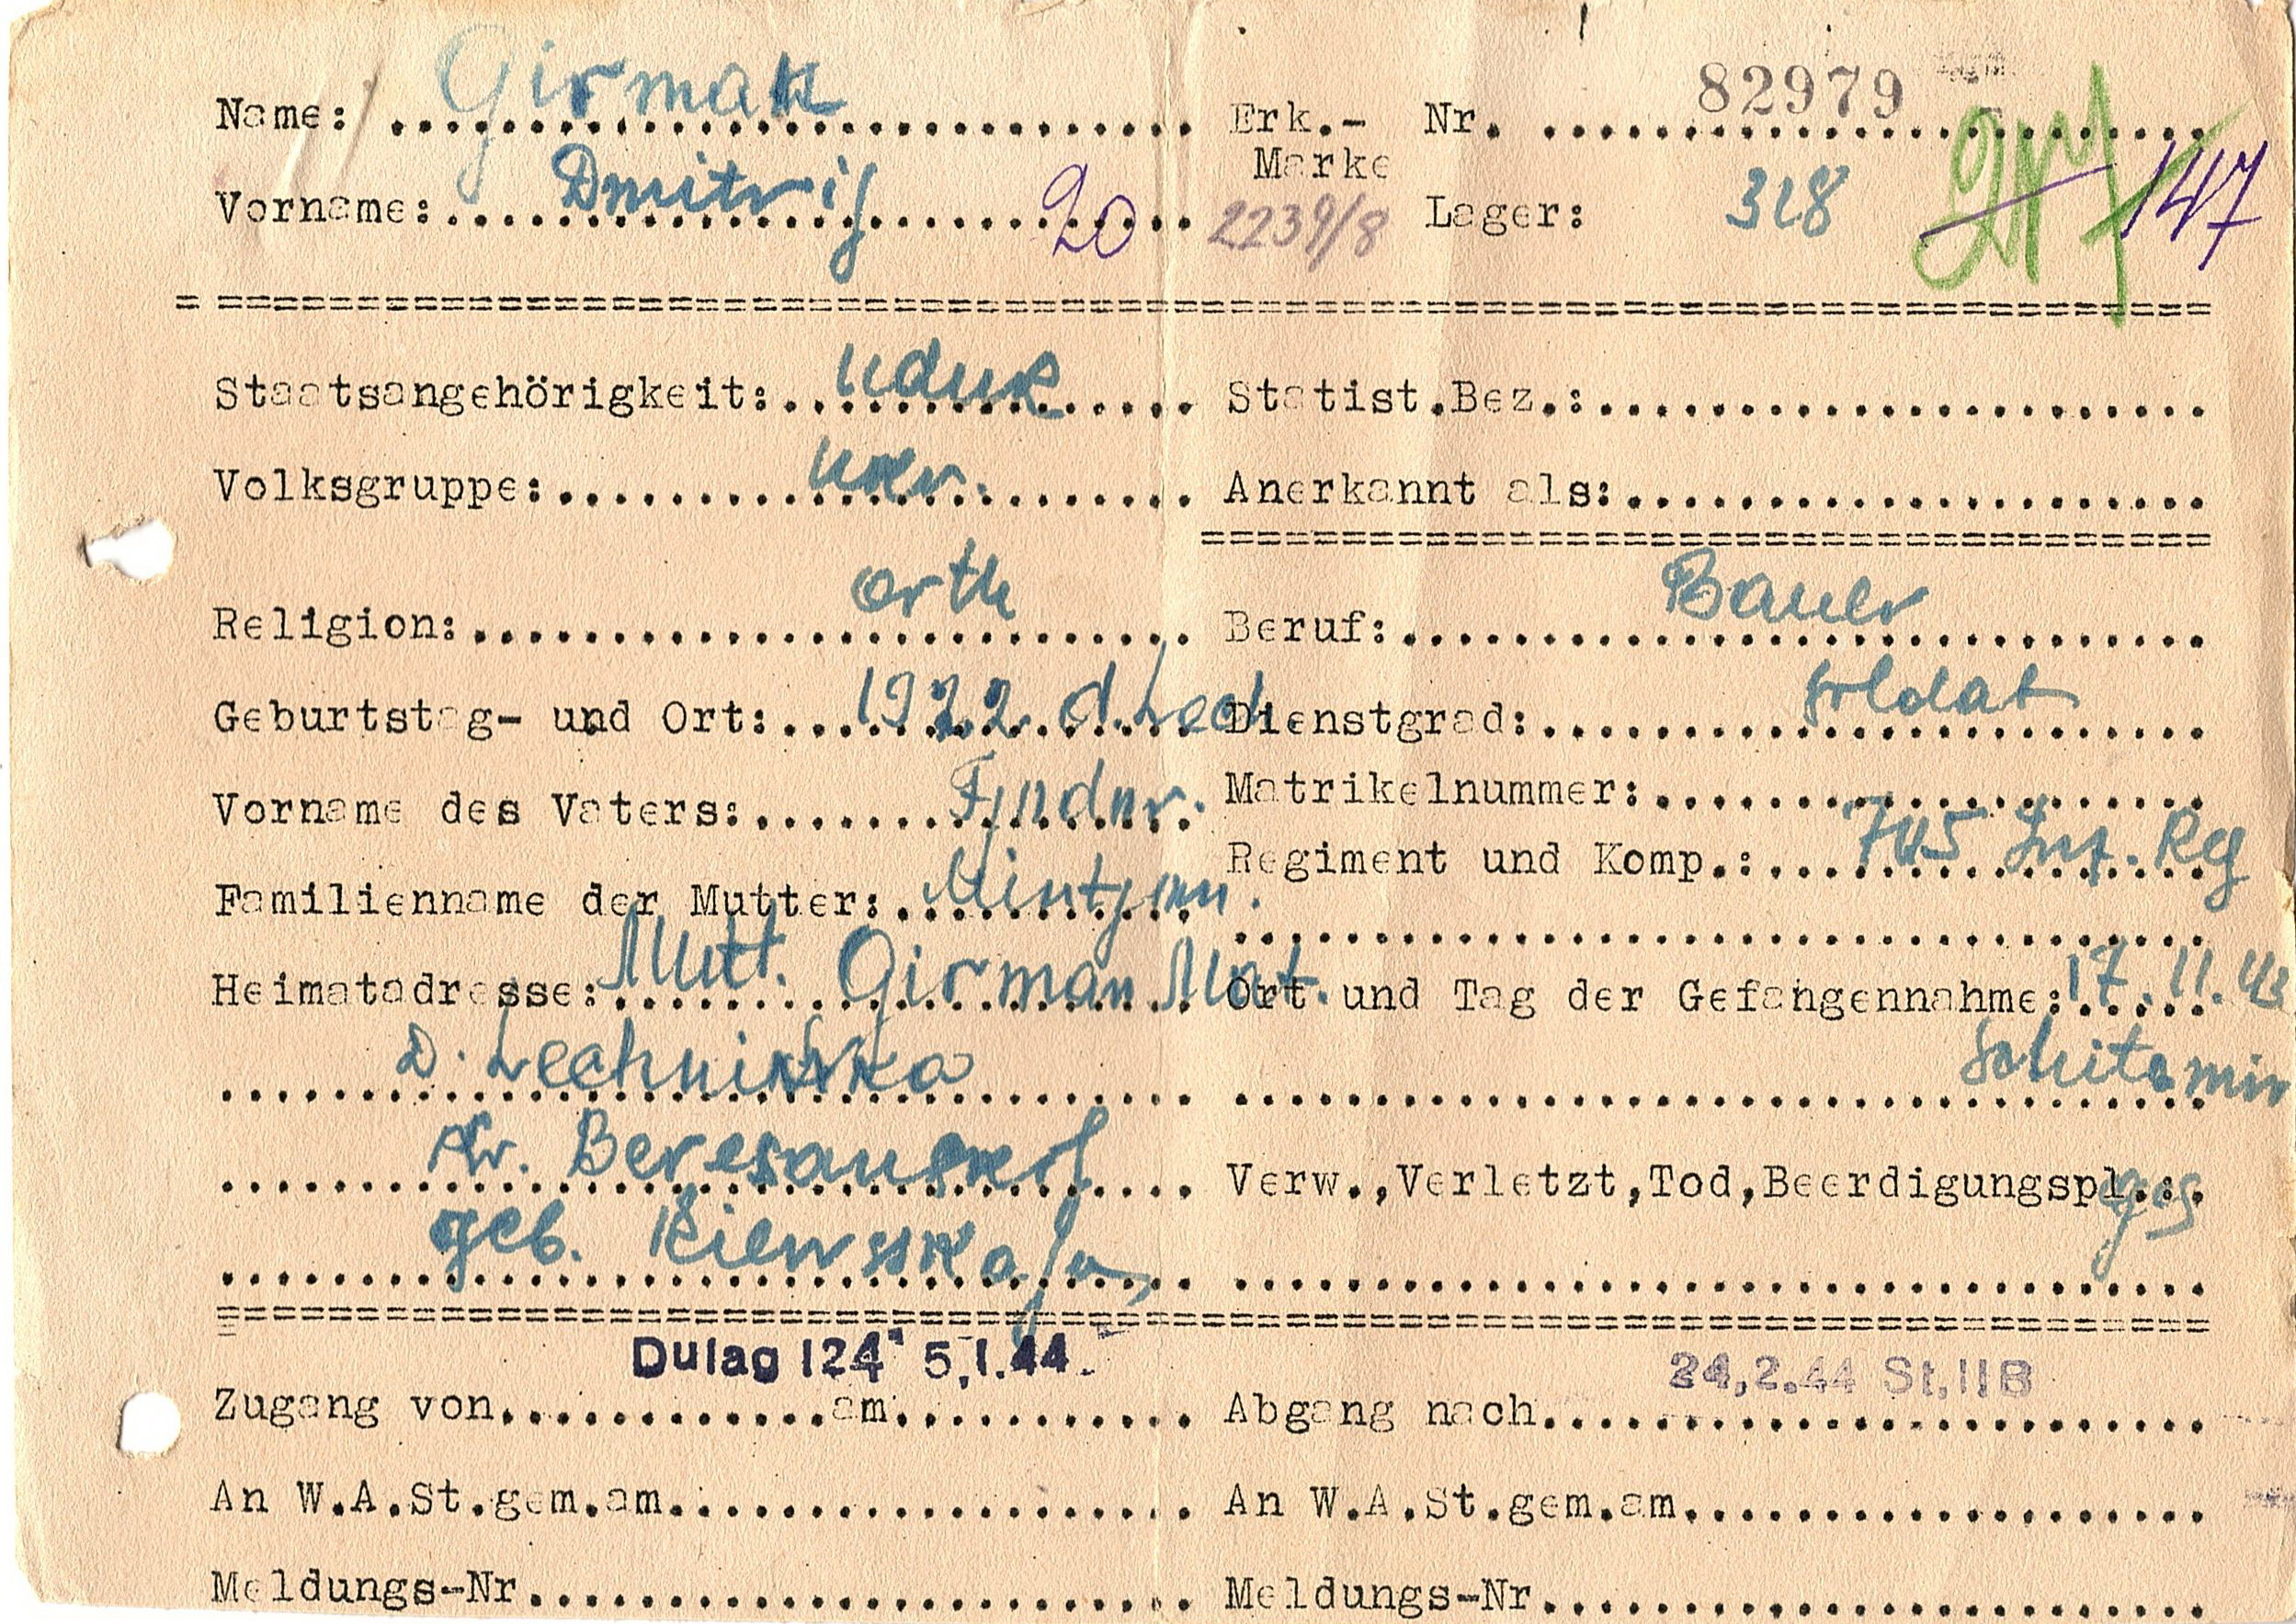 Name: Girmak
Erk.- Marke Nr. 82979
Vorname: Dmitrij 20
2239/8 Lager: 318 147
Staatsangehörigkeit:
Statist.Bez.:
Volksgruppe: ukr.
Anerkannt als:
Religion: orth
Beruf: Bauer
Geburtstag- und Ort: 1922 d. Lech.
Dienstgrad: Soldat
Vorname des Vaters:
Matrikelnummer:
Regiment und Komp.: 705 Inf. Reg
Familienname der Mutter:
Heimatadresse: Mutt. Girman Mat.
Ort und Tag der Gefangennahme: 17.11.43
D. Lechniwka
Schitomir
Kr. Beresanskij
Verw.,Verletzt,Tod,Beerdigungspl.: ges
geb. Kiewsskaja
Dulag 124 5.1.44.
24.2.44 St.IIB
Zugang von am
Abgang nach
An W.A.St.gem.am
An W.A.St.gem.am
Meldungs-Nr
Meldungs-Nr